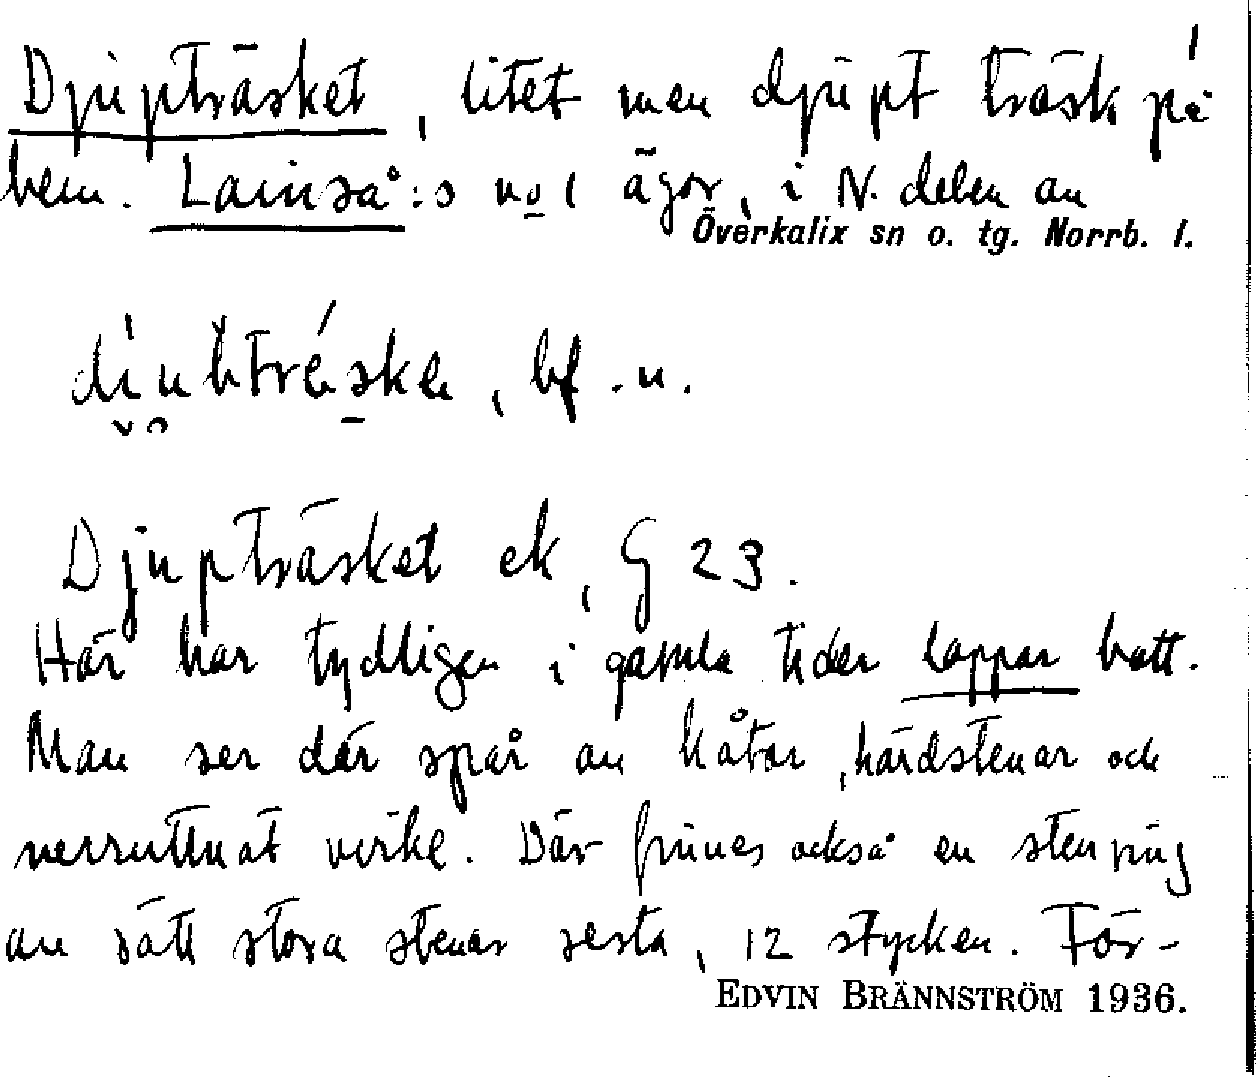 Djupträsket, litet men djupt träsk på
hem. Lainså:s no 1 ägor, i N. delen av
Överkalix sn o. tg. Norrb. l.
bf. n.
Djupträsket ek, G 23.
Här har tydligen i gamla tider lappar bott.
Man ser där spår av kåtor, härdstenar och
nerruttnat virke. Där finnes också en stenring
av rätt stora stenar resta, 12 stycken. För-
EDVIN BRÄNNSTRÖM 1936.